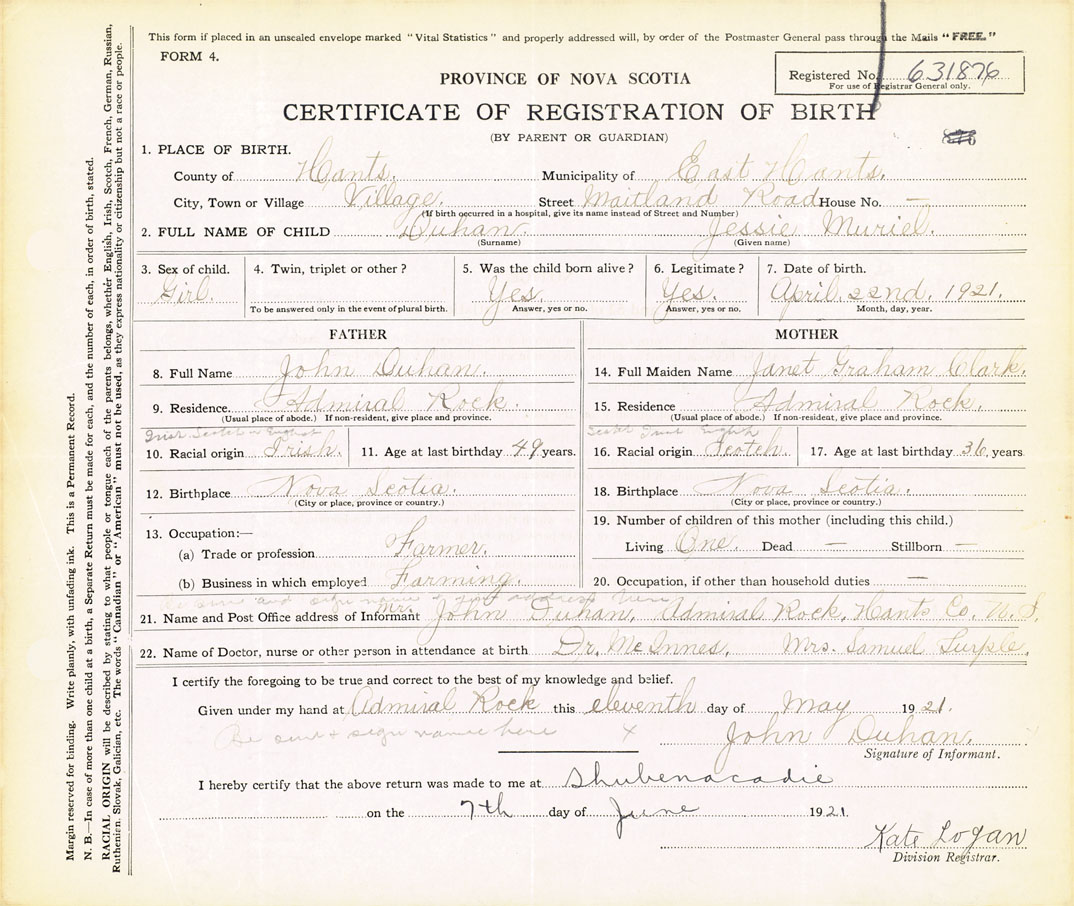 This form if placed in an unsealed envelope marked "Vital Statistics" and properly addressed will, by order of the Postmaster General pass through the Mails "FREE."
FORM 4.
PROVINCE OF NOVA SCOTIA
Registered No. 631876
For use of Registrar General only.
CERTIFICATE OF REGISTRATION OF BIRTH
(BY PARENT OR GUARDIAN)
1. PLACE OF BIRTH.
County of Hants. Municipality of East Hants.
City, Town or Village Village. Street Maitland Road House No. —
(If birth occurred in a hospital, give its name instead of Street and Number)
2. FULL NAME OF CHILD Duhan. Jessie Muriel.
(Surname) (Given name)
3. Sex of child. Girl.
4. Twin, triplet or other?
To be answered only in the event of plural birth.
5. Was the child born alive? Yes.
Answer, yes or no.
6. Legitimate? Yes.
Answer, yes or no.
7. Date of birth. April. 22nd. 1921.
Month, day, year.
FATHER
8. Full Name John Duhan.
9. Residence. Admiral Rock.
(Usual place of abode.) If non-resident, give place and province.
Irish Scotch or English
10. Racial origin Irish.
11. Age at last birthday 49 years.
12. Birthplace Nova Scotia.
(City or place, province or country.)
13. Occupation:—
(a) Trade or profession Farmer.
(b) Business in which employed Farming.
MOTHER
14. Full Maiden Name Janet Graham Clark.
15. Residence Admiral Rock.
(Usual place of abode.) If non-resident, give place and province.
Scotch Irish English
16. Racial origin Scotch.
17. Age at last birthday 36, years
18. Birthplace Nova Scotia.
(City or place, province or country.)
19. Number of children of this mother (including this child.)
Living One. Dead — Stillborn —
20. Occupation, if other than household duties —
Be sure and sign name & address here
21. Name and Post Office address of Informant Mrs. John Duhan, Admiral Rock, Hants Co. N. S.
22. Name of Doctor, nurse or other person in attendance at birth Dr. McInnes, Mrs. Samuel
I certify the foregoing to be true and correct to the best of my knowledge and belief.
Given under my hand at Admiral Rock this eleventh day of May 1921.
Be sure & sign name here x John Duhan.
Signature of Informant.
I hereby certify that the above return was made to me at Shubenacadie
on the 7th day of June 1921.
Kate Logan
Division Registrar.
Margin reserved for binding. Write plainly, with unfading ink. This is a Permanent Record.
N. B.—In case of more than one child at a birth, a Separate Return must be made for each, and the number of each, in order of birth, stated.
RACIAL ORIGIN will be described by stating to what people or tongue each of the parents belongs, whether English, Irish, Scotch, French, German, Russian,
Ruthenien, Slovak, Galician, etc. The words "Canadian" or "American" must not be used, as they express nationality or citizenship but not a race or people.